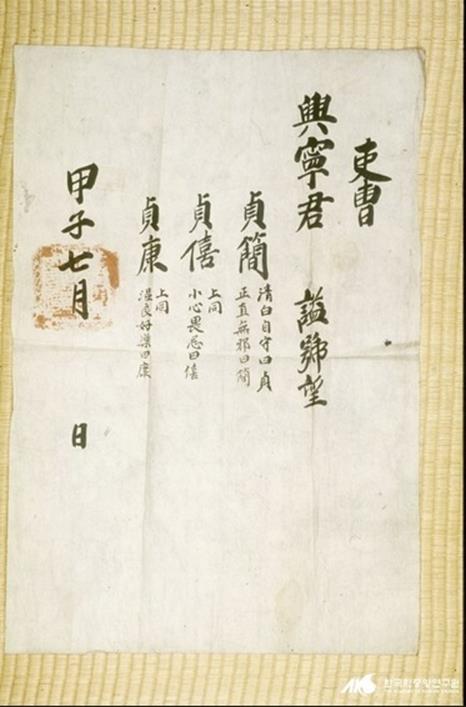 吏曹
興寧君 諡號望
貞簡 淸白自守曰貞
正直無邪曰簡
貞僖 上同
小心畏忌曰僖
貞康 上同
溫良好樂曰康
甲子七月 日
한국학중앙연구원